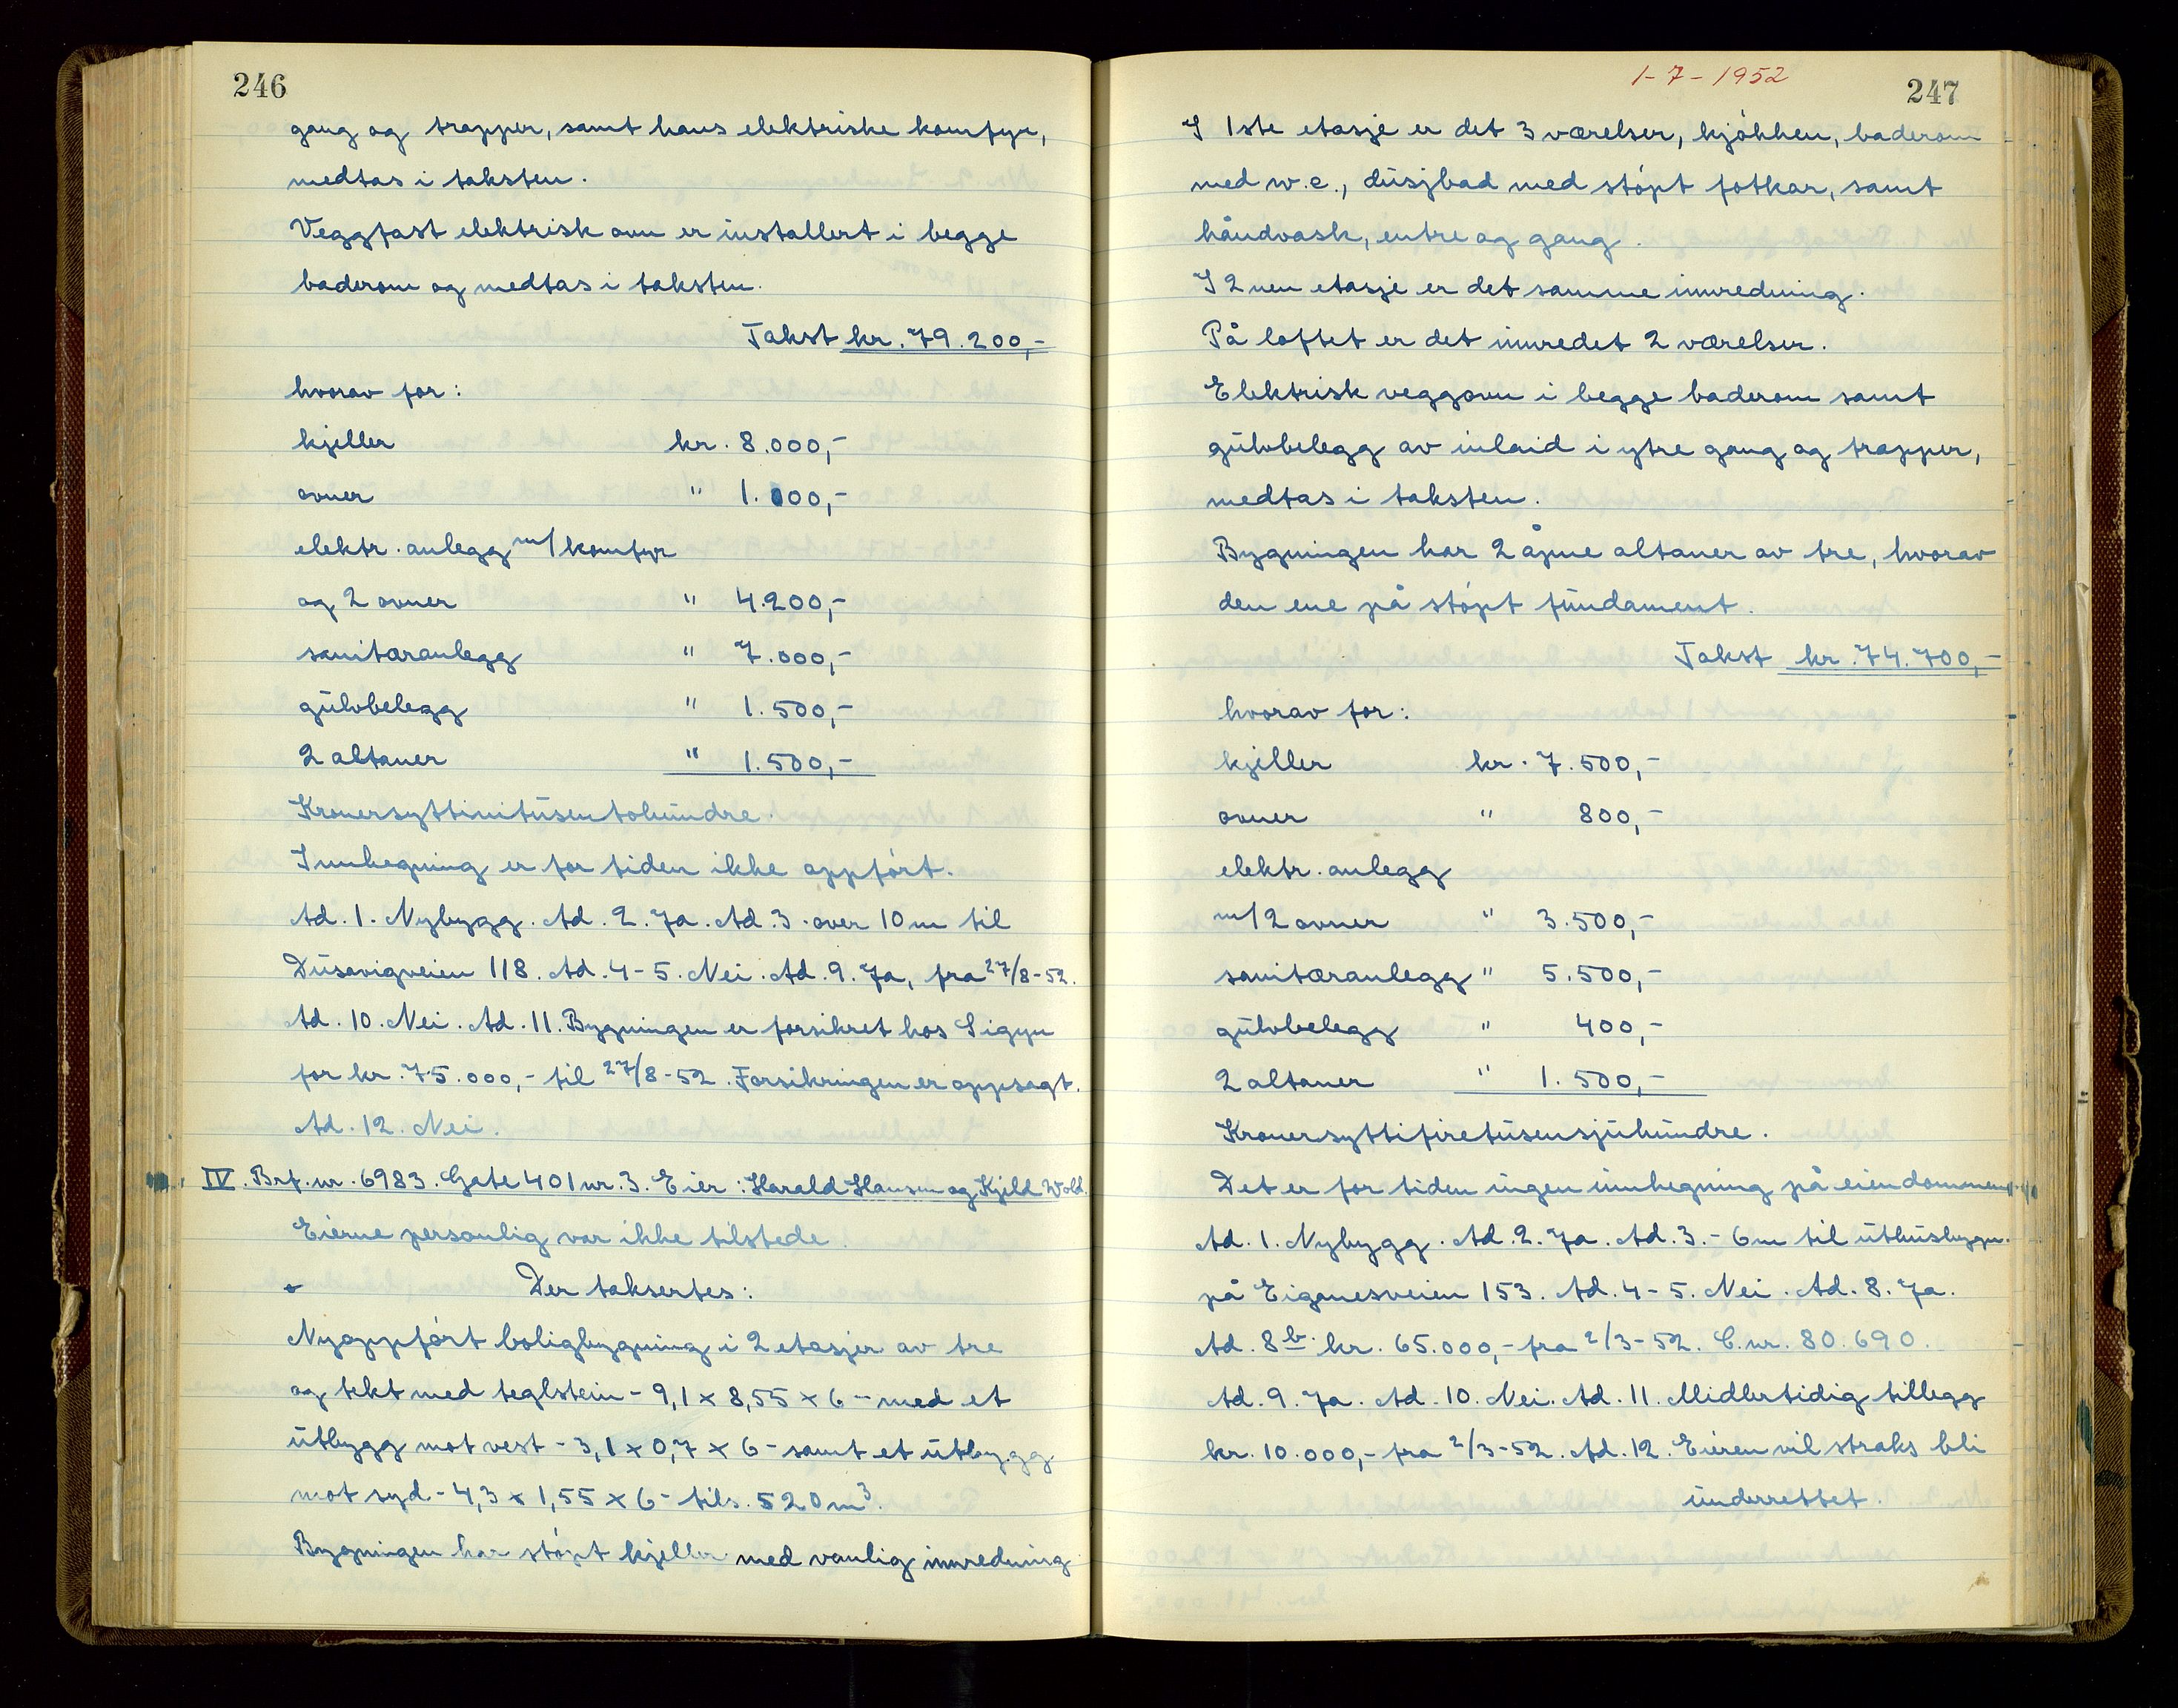 246
gang og trapper, samt hans elektriske komfyr,
medtas i taksten.
Veggfast elektrisk ovn er installert i begge
baderom og medtas i taksten.
Takst kr. 79.200,-
hvorav for:
kjeller kr. 8.000,-
ovner " 1.000,-
elektr. anlegg m/komfyr
og 2 ovner " 4.200,-
sanitæranlegg " 7.000,-
gulvbelegg " 1.500,-
2 altaner " 1.500,-
Kronersyttinitusentohundre.
Innhegning er for tiden ikke oppført.
Ad. 1. Nybygg. Ad. 2. Ja. Ad. 3. over 10 m til
Dusavigveien 118. Ad. 4-5. Nei. Ad. 9. Ja, fra 27/8-52.
Ad. 10. Nei. Ad. 11. Bygningen er forsikret hos Sigyn
for kr. 75.000,- til 27/8-52. Forsikringen er oppsagt.
Ad. 12. Nei.
IV. Brf. nr. 6983. Gate 401 nr. 3. Eier: Harald Hansen og Kjeld Wold.
Eierne personlig var ikke tilstede.
Der taksertes:
Nyoppført boligbygning i 2 etasjer av tre
og tekt med teglstein - 9,1 x 8,55 x 6 - med et
utbygg mot vest - 3,1 x 0,7 x 6 - samt et utbygg
mot syd - 4,3 x 1,55 x 6 - tils. 520 m³.
Bygningen har støpt kjeller med vanlig innredning
1-7-1952
247
I 1ste etasje er det 3 værelser, kjøkken, baderom
med w.c., dusjbad med støpt fotkar, samt
håndvask, entre og gang.
I 2nen etasje er det samme innredning.
På loftet er det innredet 2 værelser.
Elektrisk veggovn i begge baderom samt
gulvbelegg av inlaid i ytre gang og trapper,
medtas i taksten.
Bygningen har 2 åpne altaner av tre, hvorav
den ene på støpt fundament.
Takst kr. 74.700,-
hvorav for:
kjeller kr. 7.500,-
ovner " 800,-
elektr. anlegg
m/2 ovner " 3.500,-
sanitæranlegg " 5.500,-
gulvbelegg " 400,-
2 altaner " 1.500,-
Kronersyttifiretusensjuhundre.
Det er for tiden ingen innhegning på eiendommen
Ad. 1. Nybygg. Ad. 2. Ja. Ad. 3. - 6 m til uthusbygn.
på Eiganesveien 153. Ad. 4-5. Nei. Ad. 8. Ja.
Ad. 8b. kr. 65.000,- fra 2/3-52. C. nr. 80.690.
Ad. 9. Ja. Ad. 10. Nei. Ad. 11. Midlertidig tillegg
kr. 10.000,- fra 2/3-52. Ad. 12. Eieren vil straks bli
underrettet.